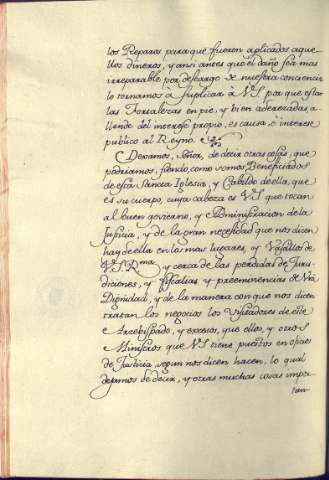 los Reparos para que fueron aplicados aque
llos dineros, y ansi antes que el daño sea mas
irreparable por descargo de nuestra conciencia
lo tornamos a suplicar à VS. por que estar
las Fortalezas en pie, y bien aderezadas a
llende del interesse propio, es causa, é interese
publico al Reyno.
Dexamos, Señor, de decir otras cosas, que
podriamos, siendo como somos Beneficiados
de esta Sancta Iglesia, y Cabildo de ella, que
es su cuerpo, cuya cabeza es VS. que tocan
al buen govierno, y Administracion de la
Justicia, y de la gran necesidad que nos dicen
hay de ella en los mas lugares, y Vasallos de
V.S. Rma. y cerca de las perdidas de Juris-
diciones, y Fiscalias y preeminencias de Vra
Dignidad, y de la manera con que nos dicen
tratan los negocios los Visitadores de este
Arzobispado, y excesos, que ellos, y otros
Ministros que VS. tiene puestos en oficios
de Justicia, segun nos dicen hacen, lo qual
dejamos de decir, y otras muchas cosas impor
tan